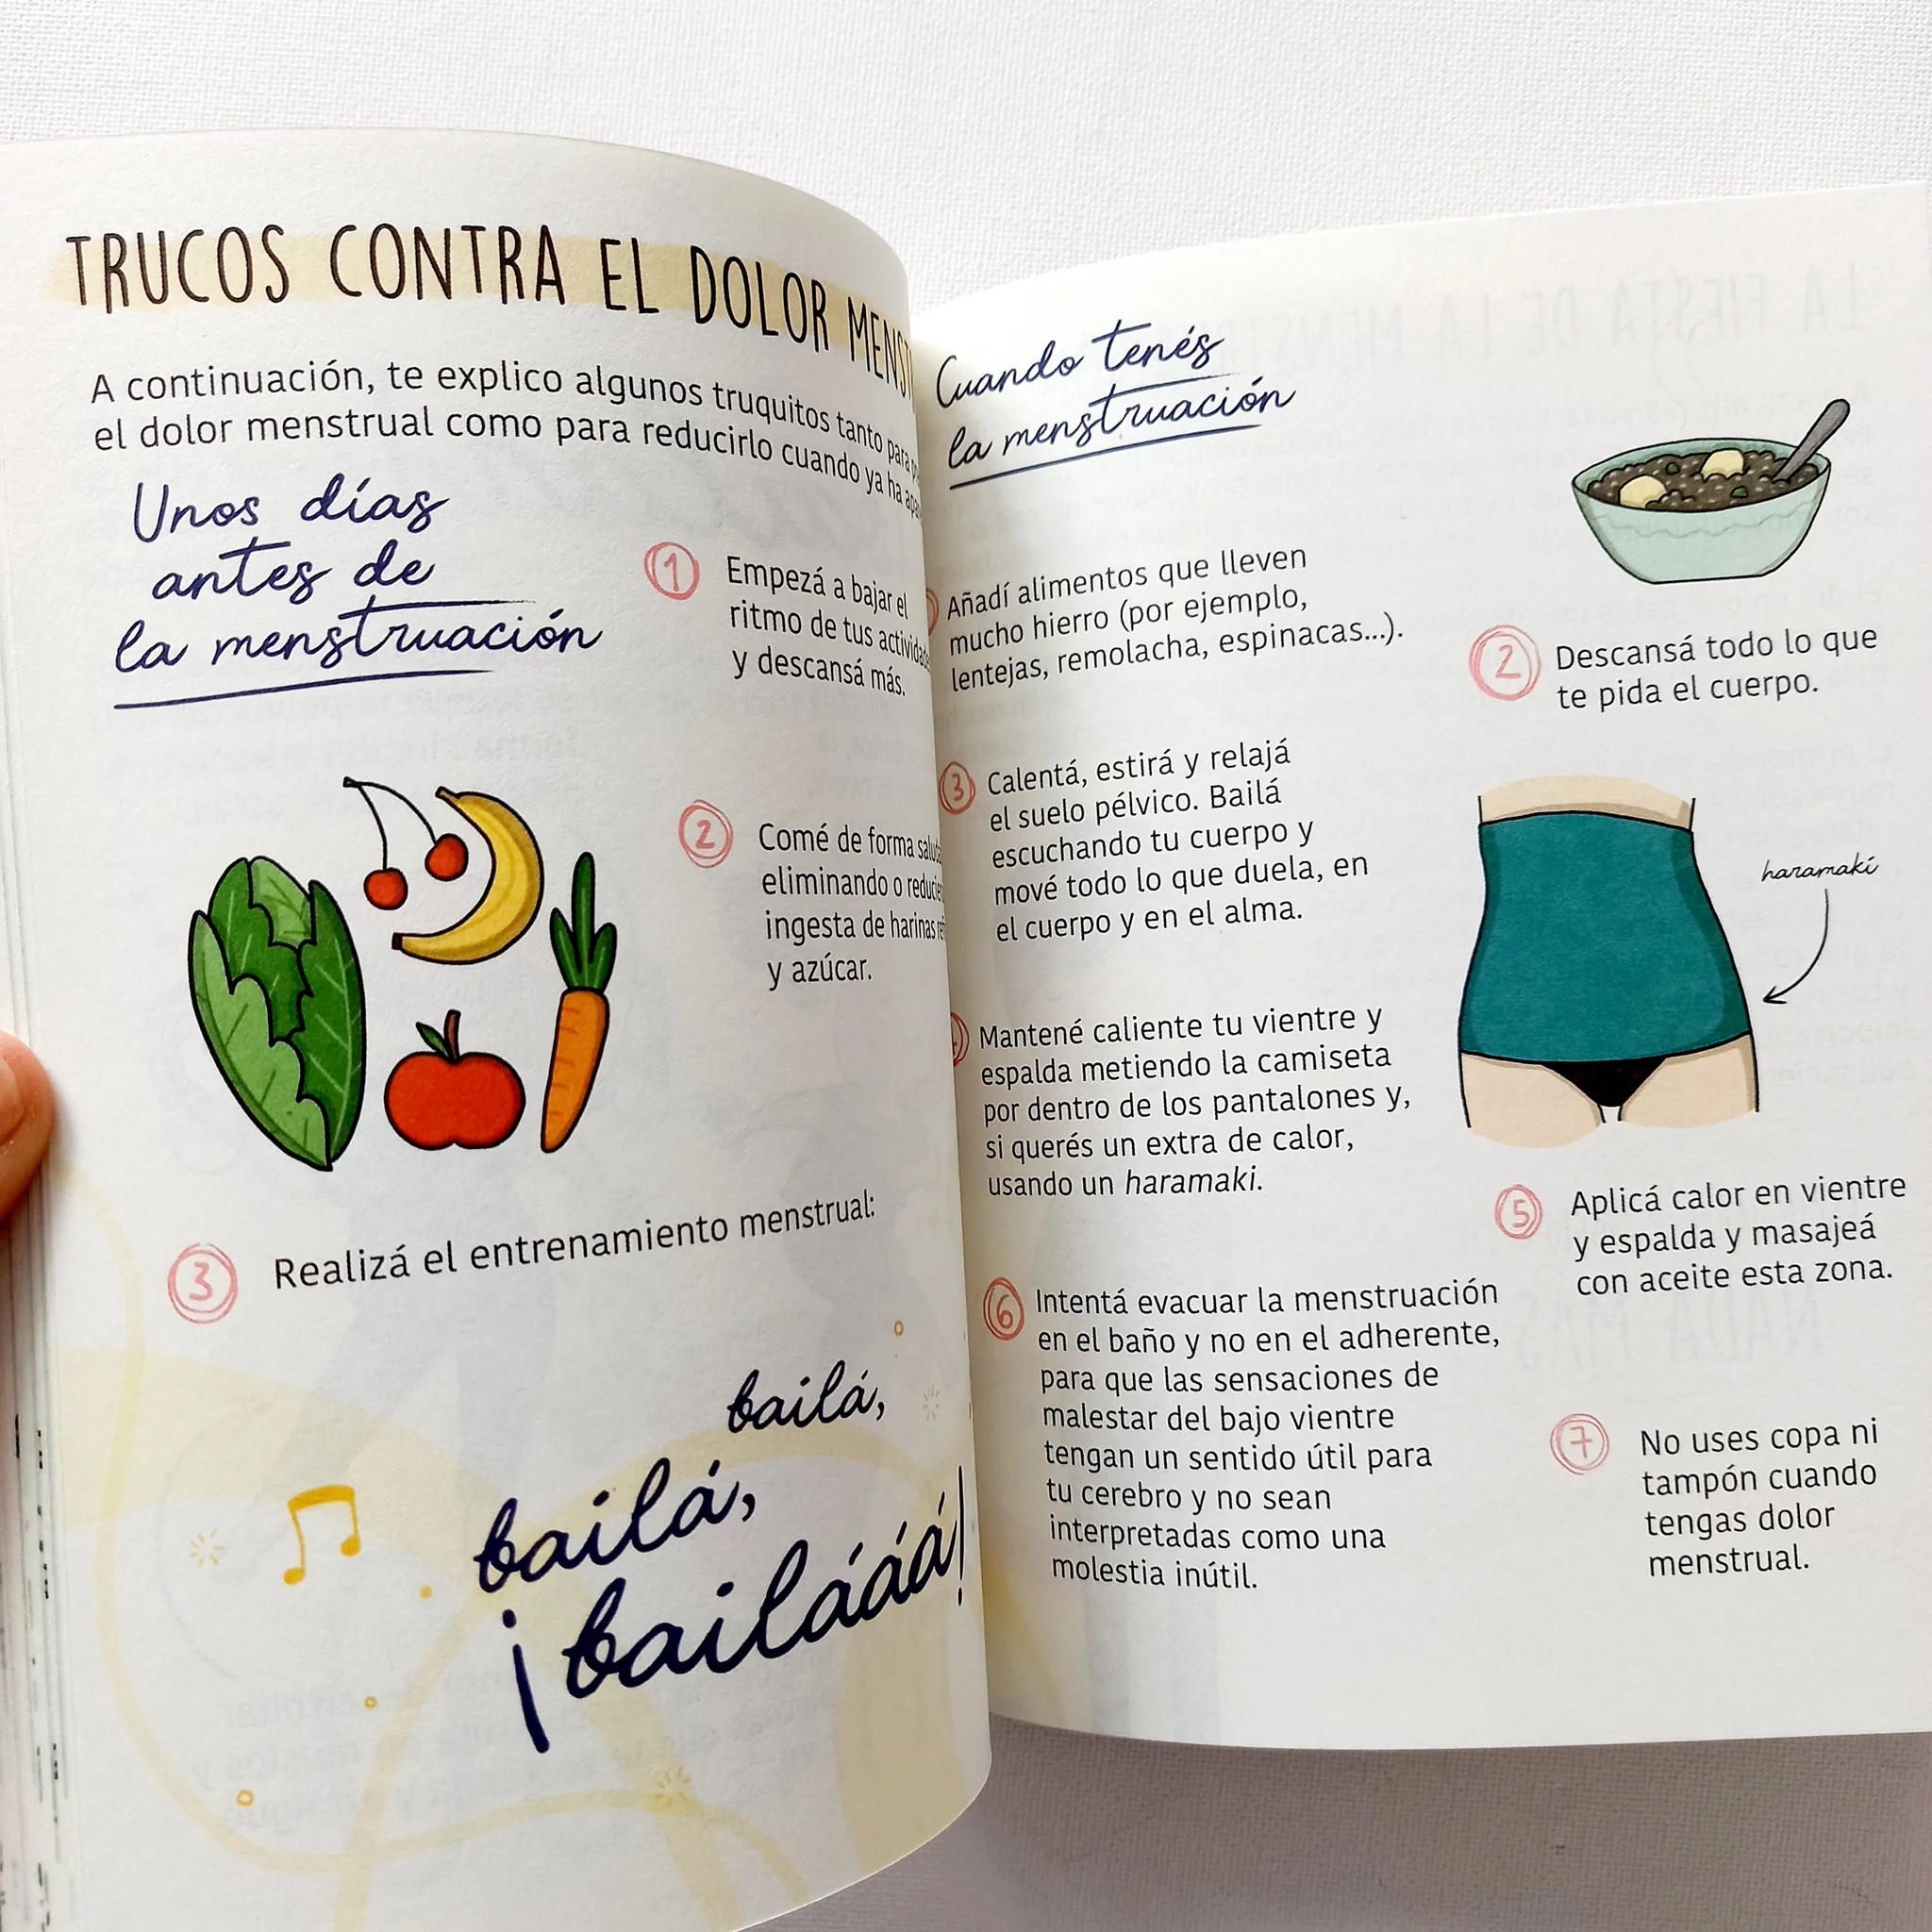 TRUCOS CONTRA EL DOLOR
A continuación, te explico algunos truquitos tanto para
el dolor menstrual como para reducirlo cuando ya ha
Unos días
antes de
la menstruación
1 Empezá a bajar el
ritmo de tus
y descansá más.
2 Comé de forma
eliminando o
ingesta de harinas
y azúcar.
3 Realizá el entrenamiento menstrual:
bailá,
bailá,
¡bailááá!
Cuando tenés
la menstruación
Añadí alimentos que lleven
mucho hierro (por ejemplo,
lentejas, remolacha, espinacas...).
2 Descansá todo lo que
te pida el cuerpo.
3 Calentá, estirá y relajá
el suelo pélvico. Bailá
escuchando tu cuerpo y
mové todo lo que duela, en
el cuerpo y en el alma.
haramaki
Mantené caliente tu vientre y
espalda metiendo la camiseta
por dentro de los pantalones y,
si querés un extra de calor,
usando un haramaki.
5 Aplicá calor en vientre
y espalda y masajeá
con aceite esta zona.
6 Intentá evacuar la menstruación
en el baño y no en el adherente,
para que las sensaciones de
malestar del bajo vientre
tengan un sentido útil para
tu cerebro y no sean
interpretadas como una
molestia inútil.
7 No uses copa ni
tampón cuando
tengas dolor
menstrual.